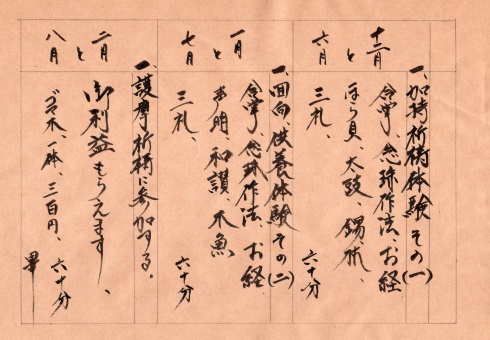 十二月と六月
一、加持祈祷体験 その(一)
合掌、念珠作法、お経
ほら貝、太鼓、錫杖、
三礼、
六十分
一月と七月
一、回向、供養体験 その(二)
合掌、念珠作法、お経
声明、和讃、木魚
三礼、
六十分
二月と八月
一、護摩祈祷に参加する。
御利益もらえます、
ゴマ木、一体、三百円、
六十分
畢